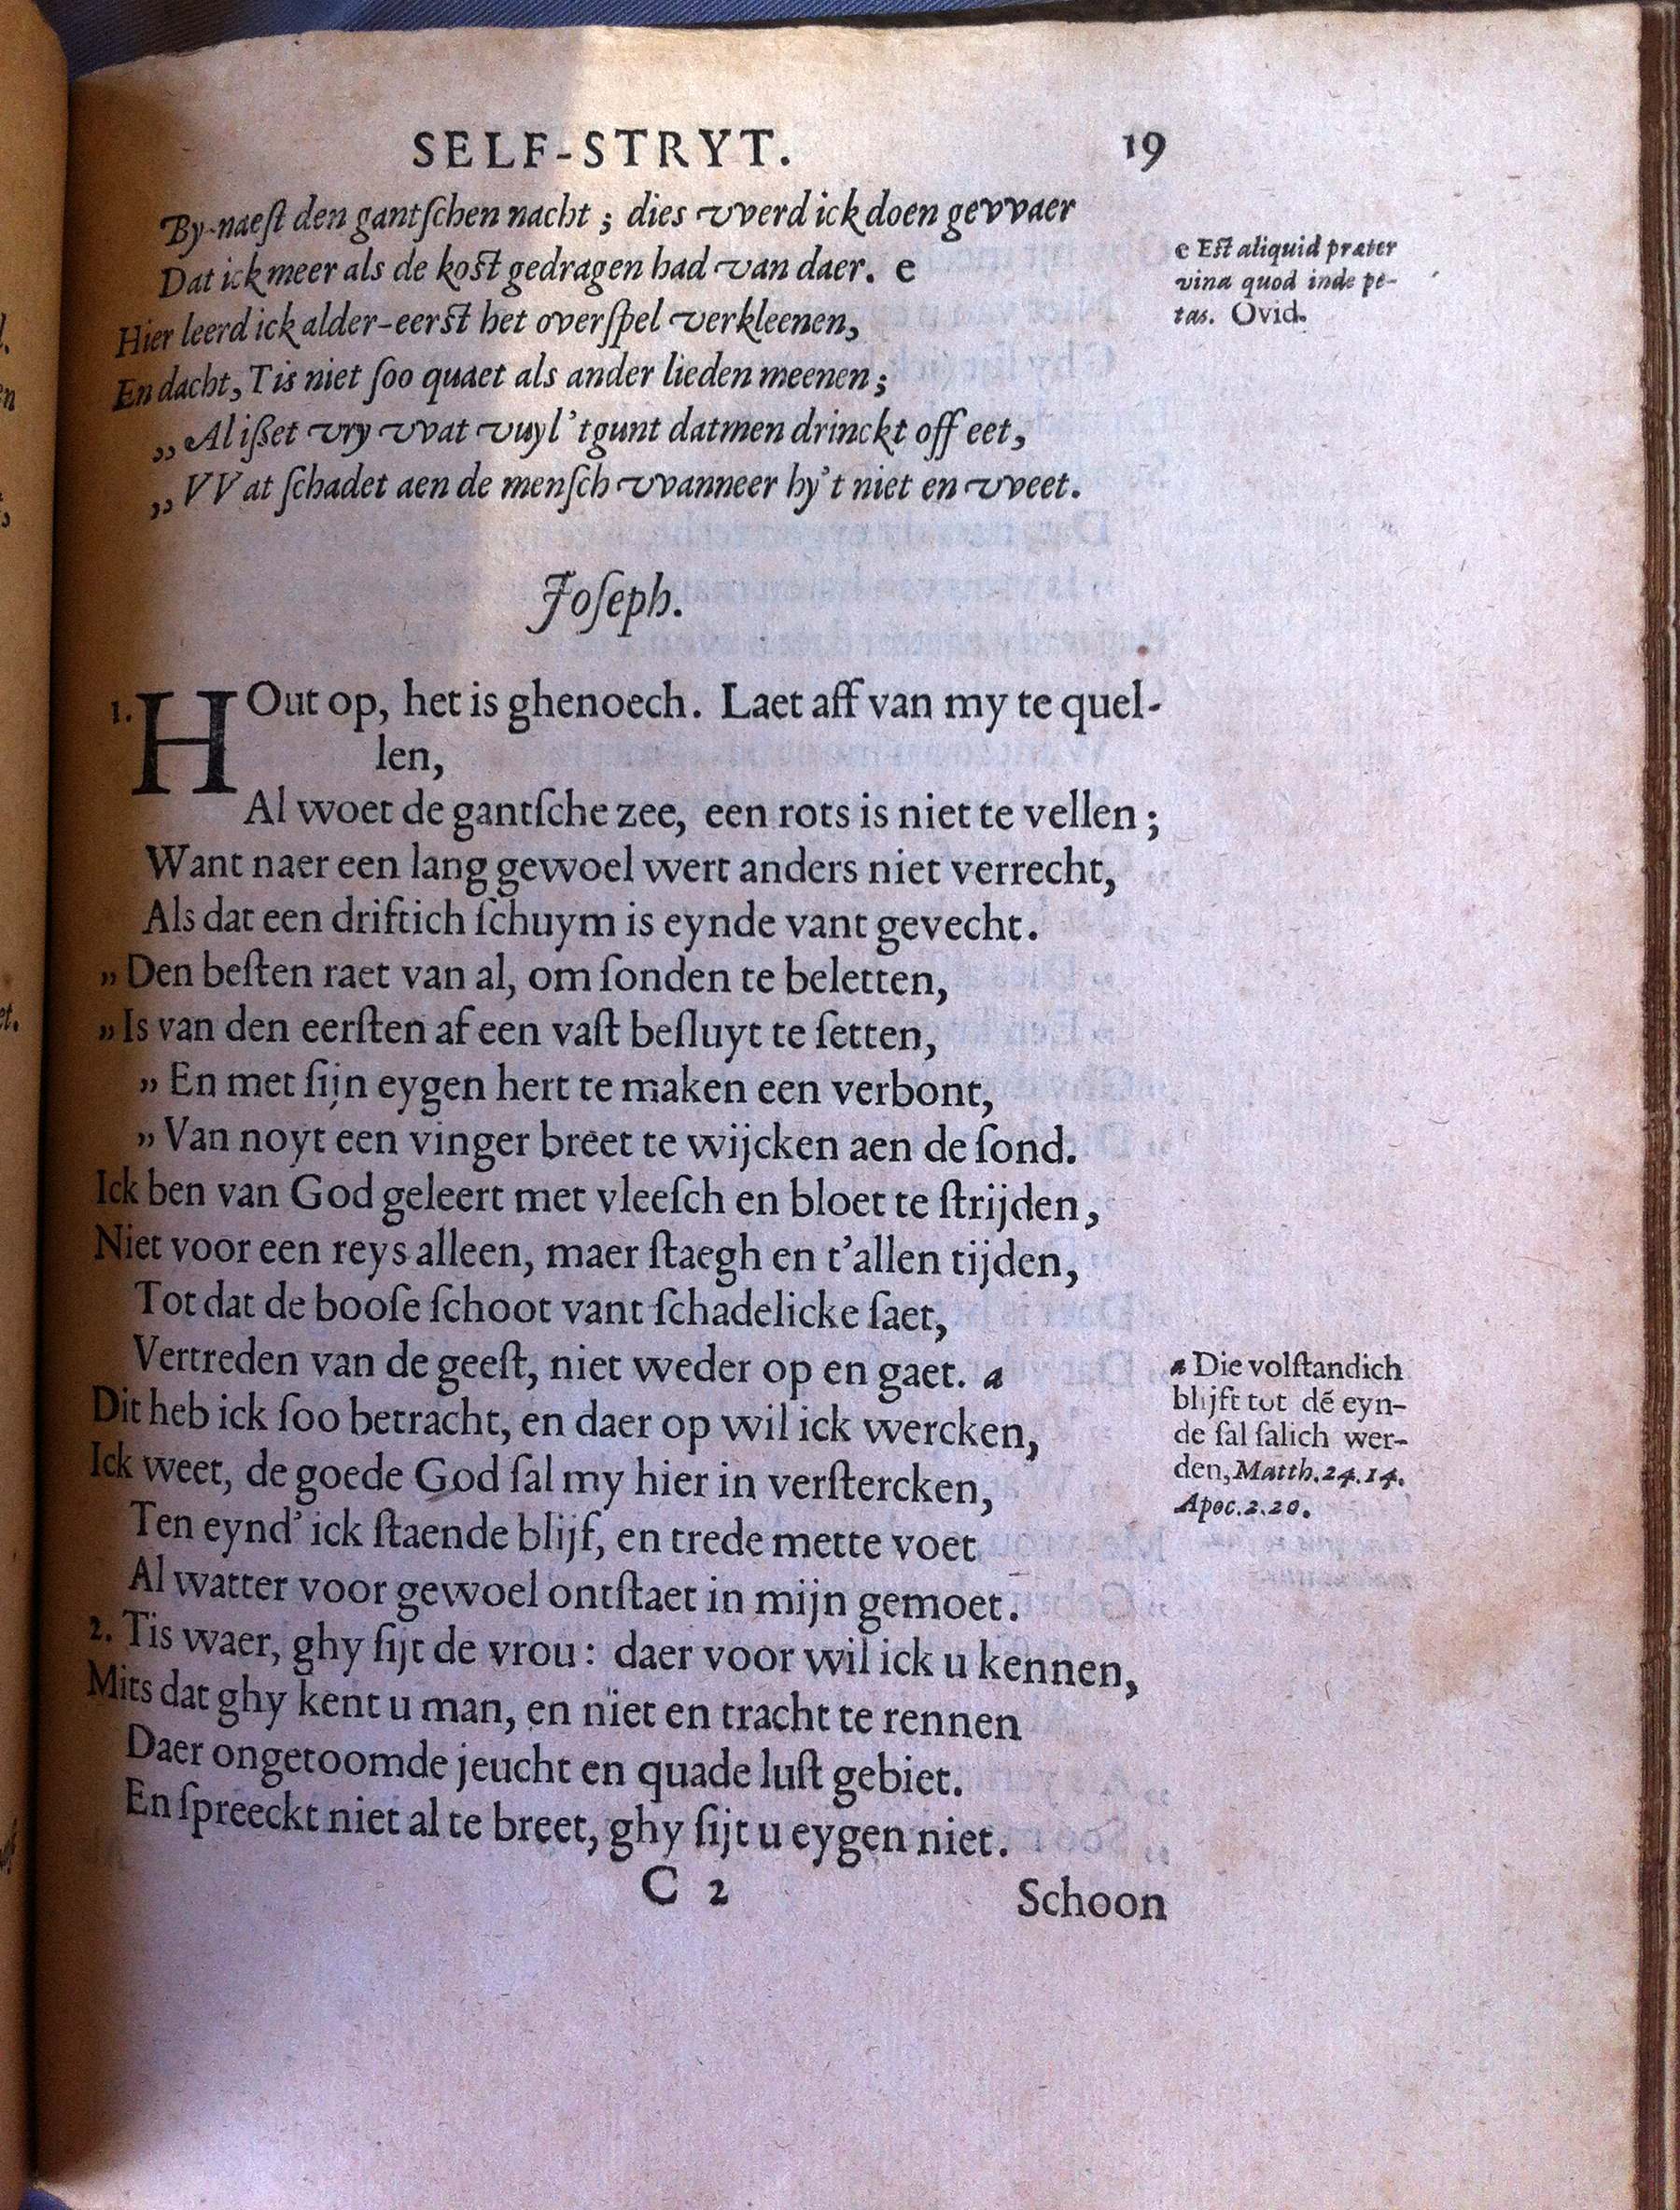 SELF-STRYT. 19
By-naeſt den gantſchen nacht ; dies vverd ick doen gevvaer
Dat ick meer als de koſt gedragen had van daer. e
e Eſt aliquid præter
vina quod inde pe-
tas. Ovid.
Hier leerd ick alder-eerſt het overſpel verkleenen,
En dacht, Tis niet ſoo quaet als ander lieden meenen ;
„ Al ißet vry vvat vuyl 'tgunt datmen drinckt off eet,
„ VVat ſchadet aen de menſch vvanneer hy't niet en vveet.
Joſeph.
1. HOut op, het is ghenoech. Laet aff van my te quel-
len,
Al woet de gantſche zee, een rots is niet te vellen ;
Want naer een lang gewoel wert anders niet verrecht,
Als dat een driftich ſchuym is eynde vant gevecht.
„ Den beſten raet van al, om ſonden te beletten,
„ Is van den eerſten af een vaſt beſluyt te ſetten,
„ En met ſijn eygen hert te maken een verbont,
„ Van noyt een vinger breet te wijcken aen de ſond.
Ick ben van God geleert met vleeſch en bloet te ſtrijden,
Niet voor een reys alleen, maer ſtaegh en t'allen tijden,
Tot dat de booſe ſchoot vant ſchadelicke ſaet,
Vertreden van de geeſt, niet weder op en gaet. a
a Die volſtandich
blijft tot dē eyn-
de ſal ſalich wer-
den, Matth. 24. 14.
Apoc. 2. 20.
Dit heb ick ſoo betracht, en daer op wil ick wercken,
Ick weet, de goede God ſal my hier in verſtercken,
Ten eynd' ick ſtaende blijf, en trede mette voet
Al watter voor gewoel ontſtaet in mijn gemoet.
2. Tis waer, ghy ſijt de vrou : daer voor wil ick u kennen,
Mits dat ghy kent u man, en niet en tracht te rennen
Daer ongetoomde jeucht en quade luſt gebiet.
En ſpreeckt niet al te breet, ghy ſijt u eygen niet.
C 2 Schoon